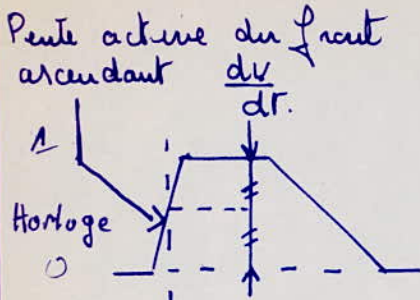 Pente active du front
ascendant
dv
dt.
1
Horloge
0